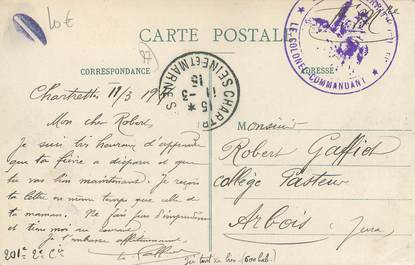 10€
CARTE POSTALE
CORRESPONDANCE
ADRESSE
87
CHARTR
SEINE ET MARNE
15
11-3
15
LE COLONEL COMMANDANT
Chartrettes 11/3 1915
Mon cher Robert,
Je suis très heureux d'apprendre
que ta fièvre a disparu et que
tu vas bien maintenant. Je reçois
ta lettre en même temps que celle de
ta maman. Ne fais pas d'imprudences
et tiens moi au courant.
Je t'embrasse affectueusement
201e 2e Cie
(600 hab.)
Monsieur
Robert Gaffiot
Collège Pasteur
Arbois
Jura